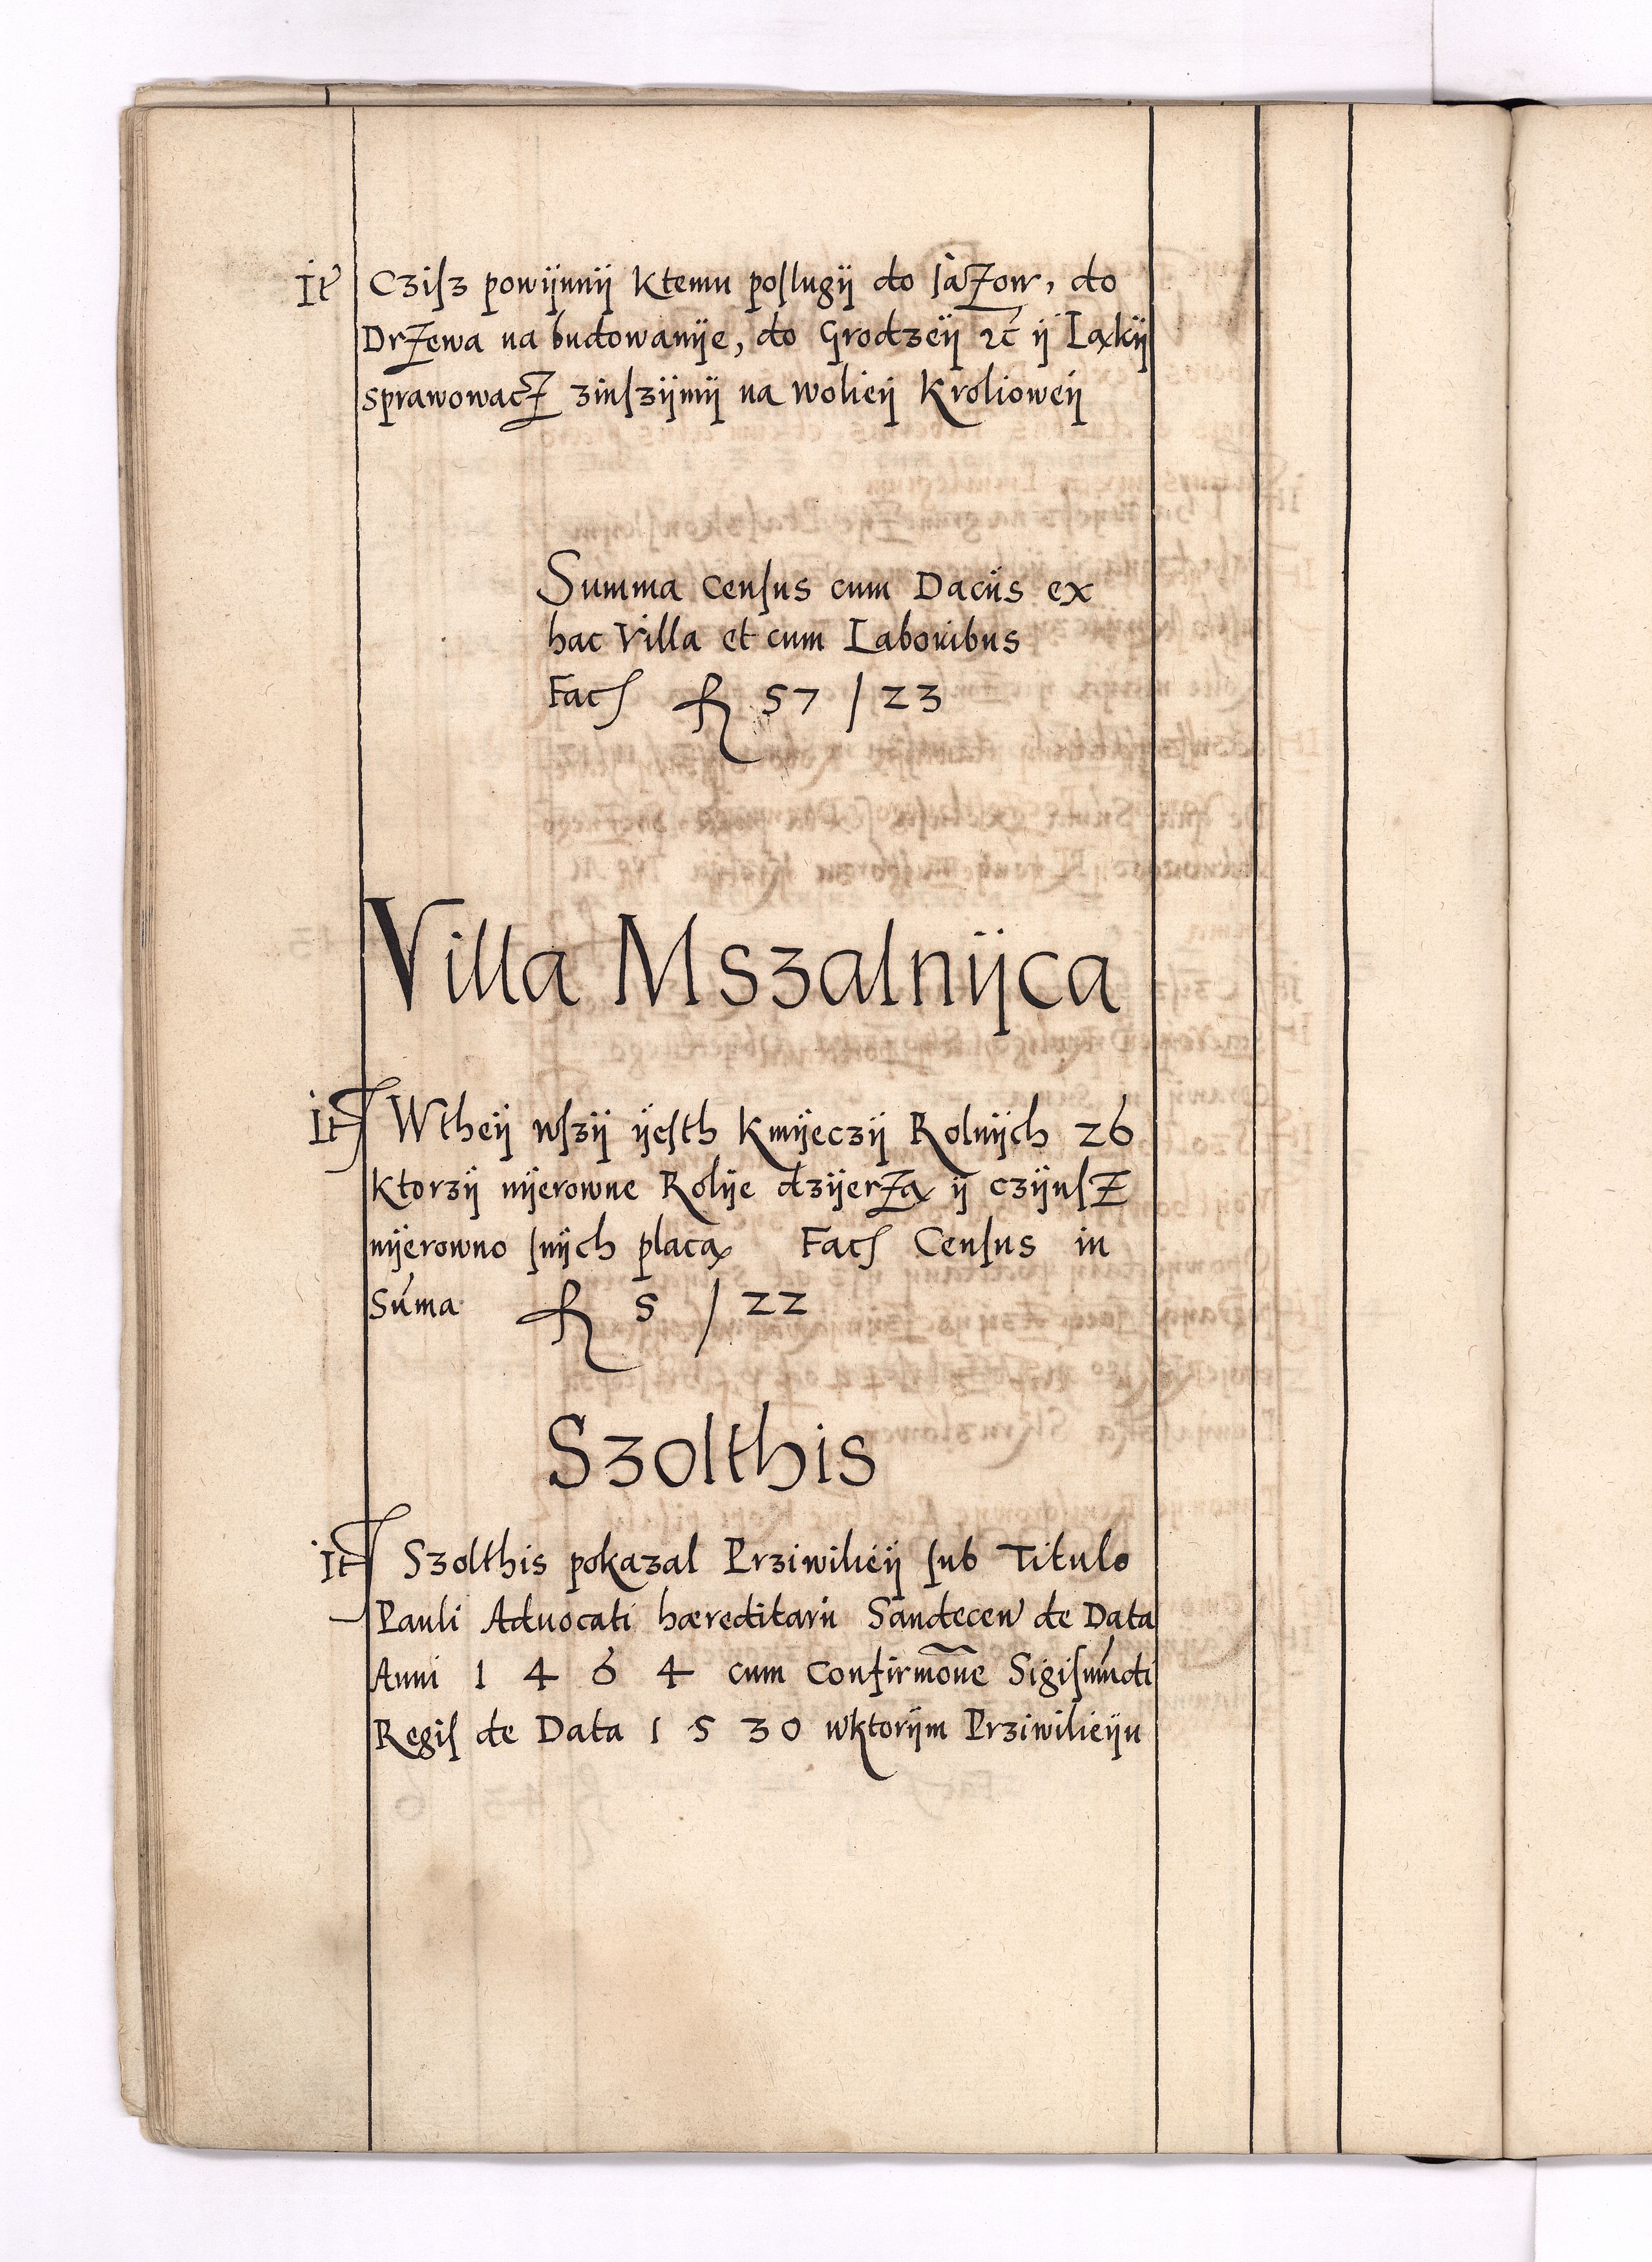 It Cziſz powÿnnÿ Ktemu poſlugÿ do ſaƵow, do
DrƵewa na budowanÿe, do Grodzeÿ ⁊c ÿ Ląkÿ
sprawowacƵ zinſzÿmÿ na wolieÿ Krolioweÿ
Summa Cenſus cum Daciis ex
hac Villa et cum Laboribus
Facſ fl 57 / 23
Villa Mszalnÿca
It Wtheÿ wſzÿ ÿeſth Kmÿeczÿ Rolnÿch 26
Ktorzÿ nÿerowne Rolÿe dzÿerƵą ÿ czÿnſƵ
nÿerowno ſnÿch placą Facſ Cenſus in
Suma fl 5 / 22
Szolthis
It Szolthis pokazal Prziwilieÿ ſub Titulo
Pauli Advocati hæreditarii Sandecen de Data
Anni 1 4 6 4 cum Confirmõne Sigiſmūdi
Regiſ de Data 1 5 3 0 wktorÿm Prziwilieÿu